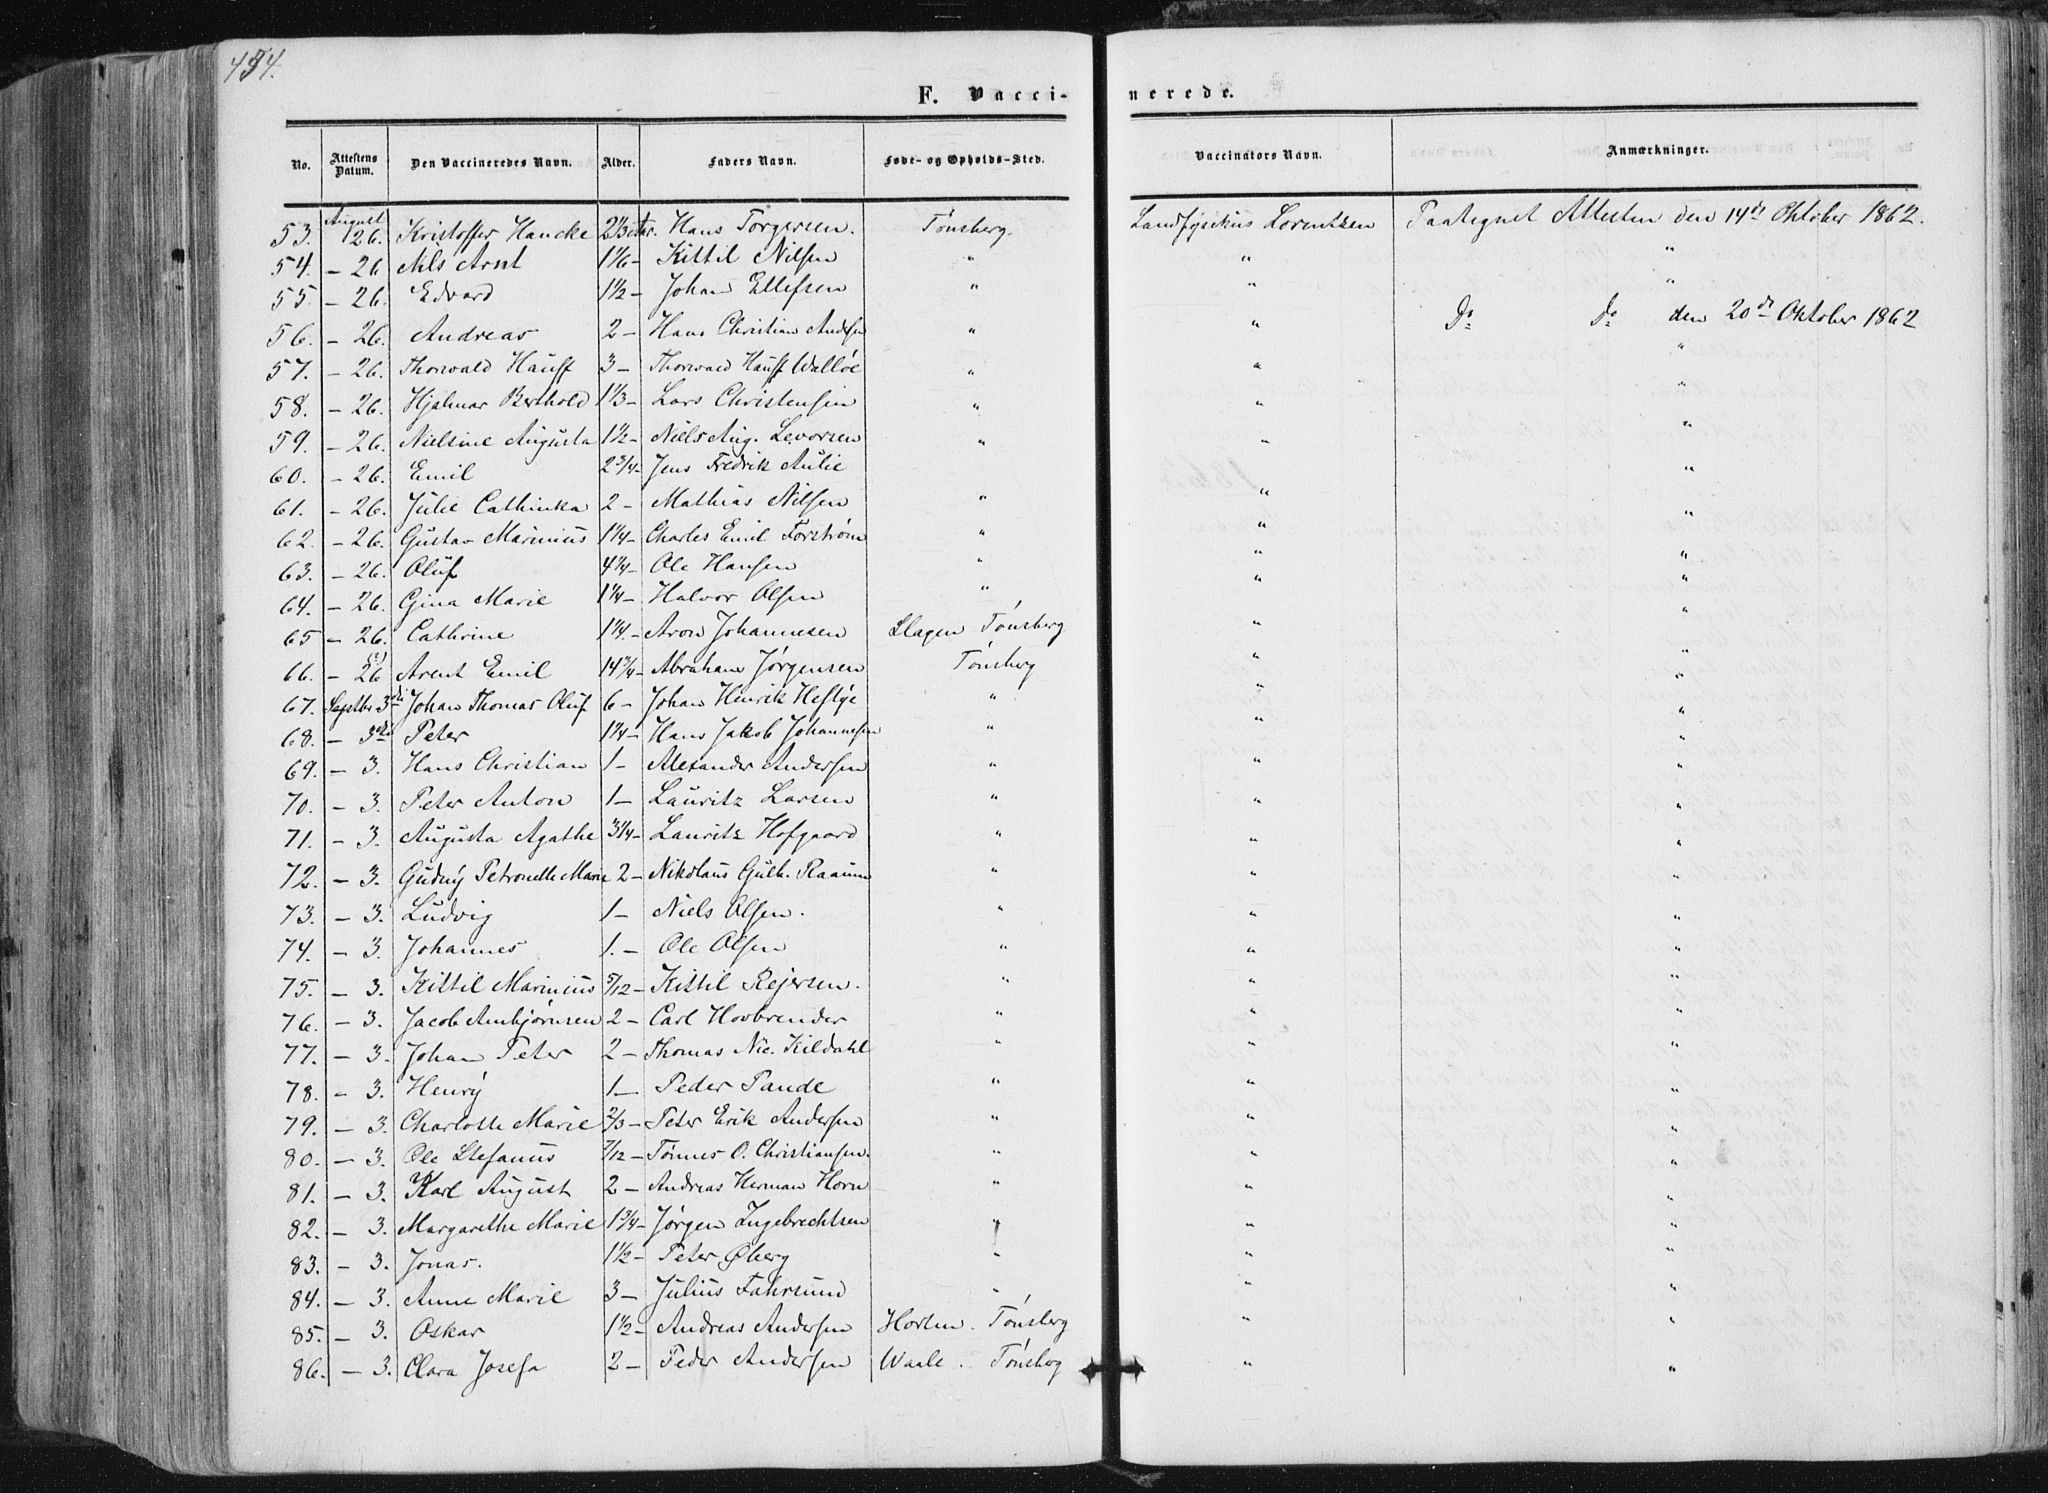 454.
F. Vaccinerede.
No. Attestens Datum. Den Vaccineredes Navn. Alder. Faders Navn. Føde- og Opholds-Sted. Vaccinators Navn. Anmærkninger.
53. August 26. Kristoffer Hancke 2 1/3 Aar. Hans Torgersen. Tønsberg. Landfysikus Lorentzen Paategnet Attesten den 14de Oktober 1862.
54. - 26 Nils Arnt 1 1/6 - Kittil Nilsen " " "
55. - 26. Edvard 1 1/2 - Johan Ellefsen " " "
56. - 26. Andreas 2 - Hans Christian Andersen " " Do Do den 20de Oktober 1862
57. - 26. Thorvald Hauff 3 - Thorvald Hauff Walløe " " "
58. - 26. Hjalmar Berthold 1 1/3 - Lars Christensen " " "
59. - 26. Nielsine Augusta 1 1/2 - Niels Aug. Levorsen " " "
60. - 26. Emil 2 3/4 - Jens Fredrik Aulie "
61. - 26. Julie Cathinka 2 - Mathias Nilsen " " "
62. - 26. Gustav Marinius 1 1/4 - Charles Emil Forstrøm " " "
63. - 26. Oluf 4 1/4 - Ole Hansen " " "
64. - 26. Gina Marie 1 1/4 - Halvor Olsen " " "
65 - 26. Cathrine 1 1/4. - Aron Johannesen Slagen Tønsberg " "
66. - 26 Arent Emil 14 3/4 - Abraham Jørgensen Tønsberg " "
67. Septbr 3di Johan Thomas Oluf 6 - Johan Henrik Heftye " " "
68. - 3di Peter 1 1/4 - Hans Jakob Johannesen " " "
69. - 3. Hans Christian 1 - Alexander Andersen " " "
70. - 3. Peter Anton 1 - Lauritz Larsen " " "
71. - 3. Augusta Agathe 3/4 - Lauritz Hofgaard " " "
72. - 3. Gudny Petronelle Marie 2 - Nikolaus Gulb. Raaum " " "
73. - 3. Ludvig 1 - Niels Olsen. " " "
74. - 3. Johannes 1. - Ole Olsen " " "
75. - 3. Kittil Marinius 5/12 - Kittil Rejersen. " " "
76. - 3. Jacob Ambjørnsen 2 - Carl Hovbrender " " "
77. - 3. Johan Peter 2 - Thomas Nic. Kildahl " " "
78. - 3. Henry 1 - Peder Pande " " "
79. - 3. Charlotte Marie 2/3 - Peter Erik Andersen " " "
80. - 3. Ole Stefanus 7/12 - Tønnes O. Christiansen. " " "
81. - 3. Karl August 2 - Andreas Herman Horn " " "
82. - 3. Margarethe Marie 1 3/4 - Jørgen Ingebrechtsen " " "
83. - 3. Jonas. 1 1/2 - Peter Øberg " " "
84. - 3. Anne Marie 3 - Julius Fahrsund " " "
85. - 3. Oskar 1 1/2 - Andreas Andersen Horten. Tønsberg " "
86. - 3. Clara Josefa 2 - Peder Andersen Waale. Tønsberg " "